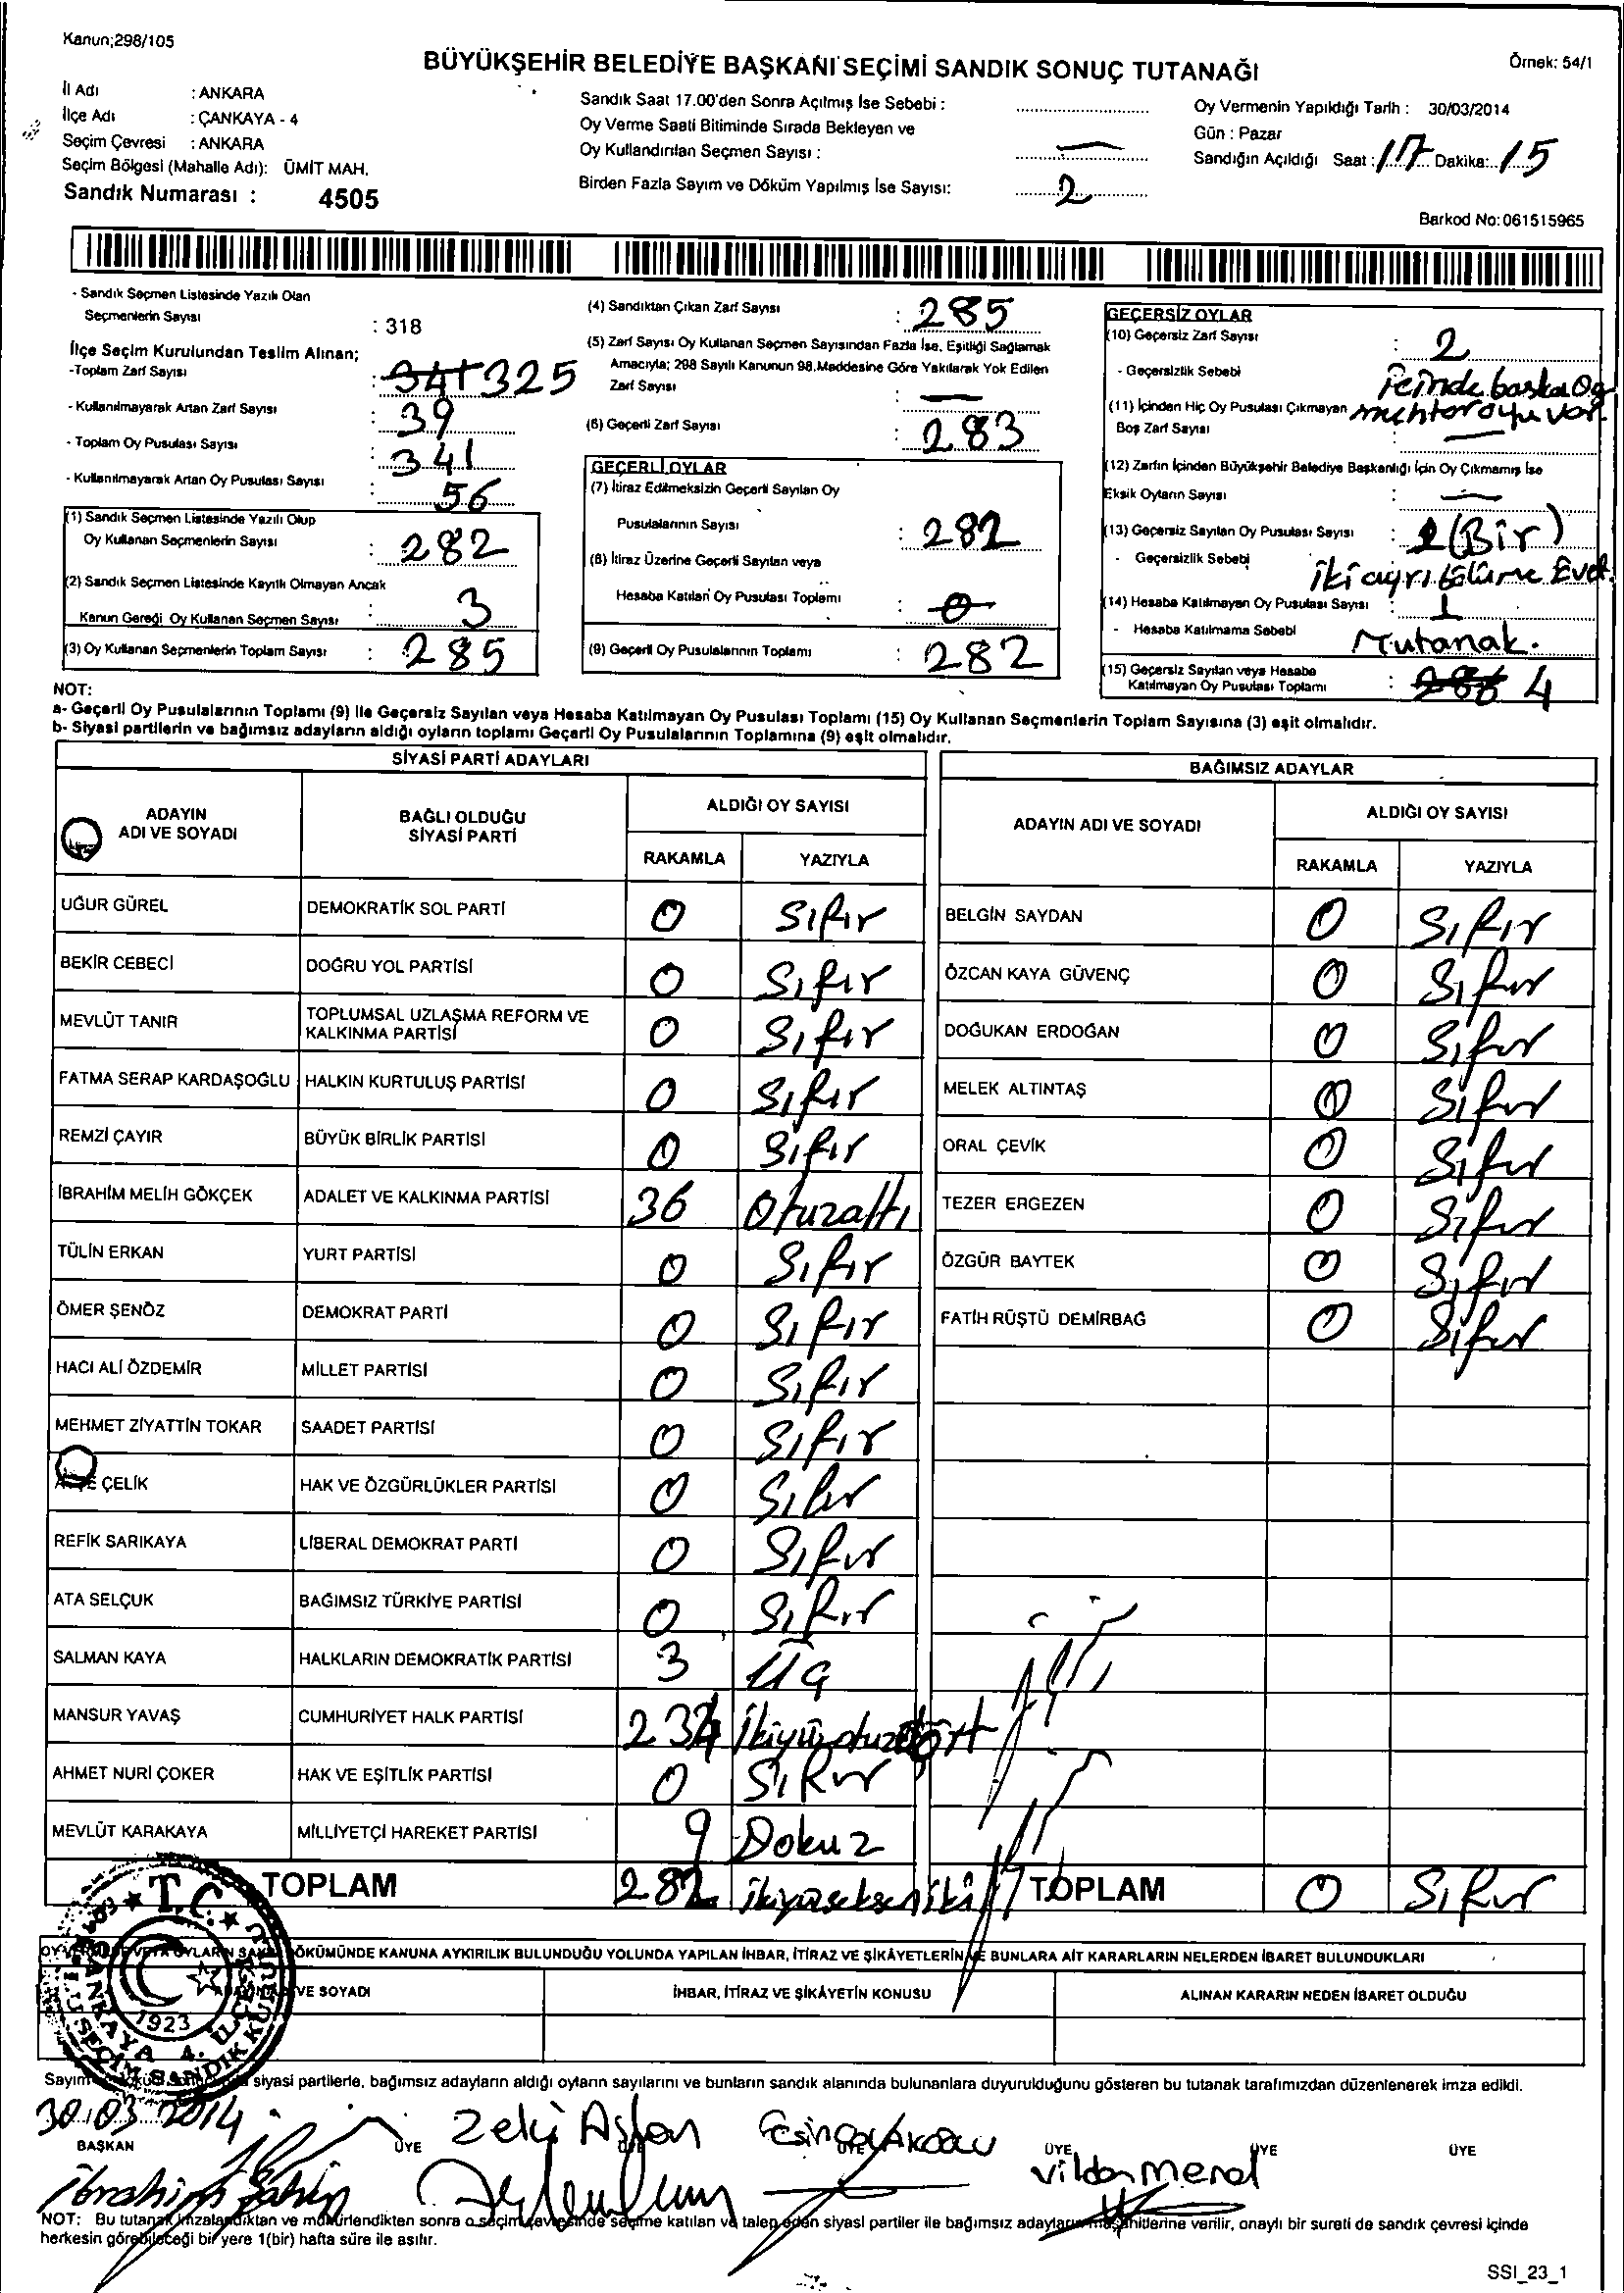 Kanun;298/105
BÜYÜKŞEHİR BELEDİYE BAŞKANI SEÇİMİ SANDIK SONUÇ TUTANAĞI
Örnek: 54/1
İl Adı : ANKARA
İlçe Adı : ÇANKAYA - 4
Seçim Çevresi : ANKARA
Seçim Bölgesi (Mahalle Adı): ÜMİT MAH.
Sandık Numarası : 4505
Sandık Saat 17.00'den Sonra Açılmış İse Sebebi :
Oy Verme Saati Bitiminde Sırada Bekleyen ve
Oy Kullandırılan Seçmen Sayısı : —
Birden Fazla Sayım ve Döküm Yapılmış İse Sayısı: 2
Oy Vermenin Yapıldığı Tarih : 30/03/2014
Gün : Pazar
Sandığın Açıldığı Saat : 17 Dakika: 15
Barkod No: 061515965
- Sandık Seçmen Listesinde Yazılı Olan
Seçmenlerin Sayısı : 318
İlçe Seçim Kurulundan Teslim Alınan;
-Toplam Zarf Sayısı : 341 325
- Kullanılmayarak Artan Zarf Sayısı : 39
- Toplam Oy Pusulası Sayısı : 341
- Kullanılmayarak Artan Oy Pusulası Sayısı : 56
(1) Sandık Seçmen Listesinde Yazılı Olup
Oy Kullanan Seçmenlerin Sayısı : 282
(2) Sandık Seçmen Listesinde Kayıtlı Olmayan Ancak
Kanun Gereği Oy Kullanan Seçmen Sayısı : 3
(3) Oy Kullanan Seçmenlerin Toplam Sayısı : 285
(4) Sandıktan Çıkan Zarf Sayısı : 285
(5) Zarf Sayısı Oy Kullanan Seçmen Sayısından Fazla İse, Eşitliği Sağlamak
Amacıyla; 298 Sayılı Kanunun 98.Maddesine Göre Yakılarak Yok Edilen
Zarf Sayısı : —
(6) Geçerli Zarf Sayısı : 283
GEÇERLİ OYLAR
(7) İtiraz Edilmeksizin Geçerli Sayılan Oy
Pusulalarının Sayısı : 282
(8) İtiraz Üzerine Geçerli Sayılan veya
Hesaba Katılan Oy Pusulası Toplamı : 0
(9) Geçerli Oy Pusulalarının Toplamı : 282
GEÇERSİZ OYLAR
(10) Geçersiz Zarf Sayısı : 2
- Geçersizlik Sebebi : içinde başka oy
(11) İçinden Hiç Oy Pusulası Çıkmayan muhtar oyu var.
Boş Zarf Sayısı : —
(12) Zarfın İçinden Büyükşehir Belediye Başkanlığı İçin Oy Çıkmamış İse
Eksik Oyların Sayısı : —
(13) Geçersiz Sayılan Oy Pusulası Sayısı : 1 (Bir)
- Geçersizlik Sebebi iki ayrı bölüme Evet.
(14) Hesaba Katılmayan Oy Pusulası Sayısı : 1
- Hesaba Katılmama Sebebi Tutanak.
(15) Geçersiz Sayılan veya Hesaba
Katılmayan Oy Pusulası Toplamı : 4
NOT:
a- Geçerli Oy Pusulalarının Toplamı (9) ile Geçersiz Sayılan veya Hesaba Katılmayan Oy Pusulası Toplamı (15) Oy Kullanan Seçmenlerin Toplam Sayısına (3) eşit olmalıdır.
b- Siyasi partilerin ve bağımsız adayların aldığı oyların toplamı Geçerli Oy Pusulalarının Toplamına (9) eşit olmalıdır.
SİYASİ PARTİ ADAYLARI
ADAYIN ADI VE SOYADI
BAĞLI OLDUĞU SİYASİ PARTİ
ALDIĞI OY SAYISI
RAKAMLA YAZIYLA
UĞUR GÜREL DEMOKRATİK SOL PARTİ 0 Sıfır
BEKİR CEBECİ DOĞRU YOL PARTİSİ 0 Sıfır
MEVLÜT TANIR TOPLUMSAL UZLAŞMA REFORM VE KALKINMA PARTİSİ 0 Sıfır
FATMA SERAP KARDAŞOĞLU HALKIN KURTULUŞ PARTİSİ 0 Sıfır
REMZİ ÇAYIR BÜYÜK BİRLİK PARTİSİ 0 Sıfır
İBRAHİM MELİH GÖKÇEK ADALET VE KALKINMA PARTİSİ 36 Otuzaltı
TÜLİN ERKAN YURT PARTİSİ 0 Sıfır
ÖMER ŞENÖZ DEMOKRAT PARTİ 0 Sıfır
HACI ALİ ÖZDEMİR MİLLET PARTİSİ 0 Sıfır
MEHMET ZİYATTİN TOKAR SAADET PARTİSİ 0 Sıfır
ÇELİK HAK VE ÖZGÜRLÜKLER PARTİSİ 0 Sıfır
REFİK SARIKAYA LİBERAL DEMOKRAT PARTİ 0 Sıfır
ATA SELÇUK BAĞIMSIZ TÜRKİYE PARTİSİ 0 Sıfır
SALMAN KAYA HALKLARIN DEMOKRATİK PARTİSİ 3 Üç
MANSUR YAVAŞ CUMHURİYET HALK PARTİSİ 234 İkiyüzotuzdört
AHMET NURİ ÇOKER HAK VE EŞİTLİK PARTİSİ 0 Sıfır
MEVLÜT KARAKAYA MİLLİYETÇİ HAREKET PARTİSİ 9 Dokuz
TOPLAM 282 ikiyüzsekseniki
BAĞIMSIZ ADAYLAR
ADAYIN ADI VE SOYADI
ALDIĞI OY SAYISI
RAKAMLA YAZIYLA
BELGİN SAYDAN 0 Sıfır
ÖZCAN KAYA GÜVENÇ 0 Sıfır
DOĞUKAN ERDOĞAN 0 Sıfır
MELEK ALTINTAŞ 0 Sıfır
ORAL ÇEVİK 0 Sıfır
TEZER ERGEZEN 0 Sıfır
ÖZGÜR BAYTEK 0 Sıfır
FATİH RÜŞTÜ DEMİRBAĞ 0 Sıfır
TOPLAM 0 Sıfır
T.C.
ÇANKAYA 4. İLÇE
SEÇİM SANDIK KURULU
1923
DÖKÜMÜNDE KANUNA AYKIRILIK BULUNDUĞU YOLUNDA YAPILAN İHBAR, İTİRAZ VE ŞİKÂYETLERİN VE BUNLARA AİT KARARLARIN NELERDEN İBARET BULUNDUKLARI
VE SOYADI
İHBAR, İTİRAZ VE ŞİKÂYETİN KONUSU
ALINAN KARARIN NEDEN İBARET OLDUĞU
Sayım siyasi partilerle, bağımsız adayların aldığı oyların sayılarını ve bunların sandık alanında bulunanlara duyurulduğunu gösteren bu tutanak tarafımızdan düzenlenerek imza edildi.
30.03.2014
BAŞKAN ÜYE ÜYE ÜYE ÜYE ÜYE ÜYE
İbrahim Şahin
Zeki Aslan
Vildan Meral
NOT: Bu tutanak imzalandıktan ve mühürlendikten sonra o seçim çevresinde seçime katılan ve talep eden siyasi partiler ile bağımsız adayların müşahitlerine verilir, onaylı bir sureti de sandık çevresi içinde
herkesin görebileceği bir yere 1(bir) hafta süre ile asılır.
SSI_23_1